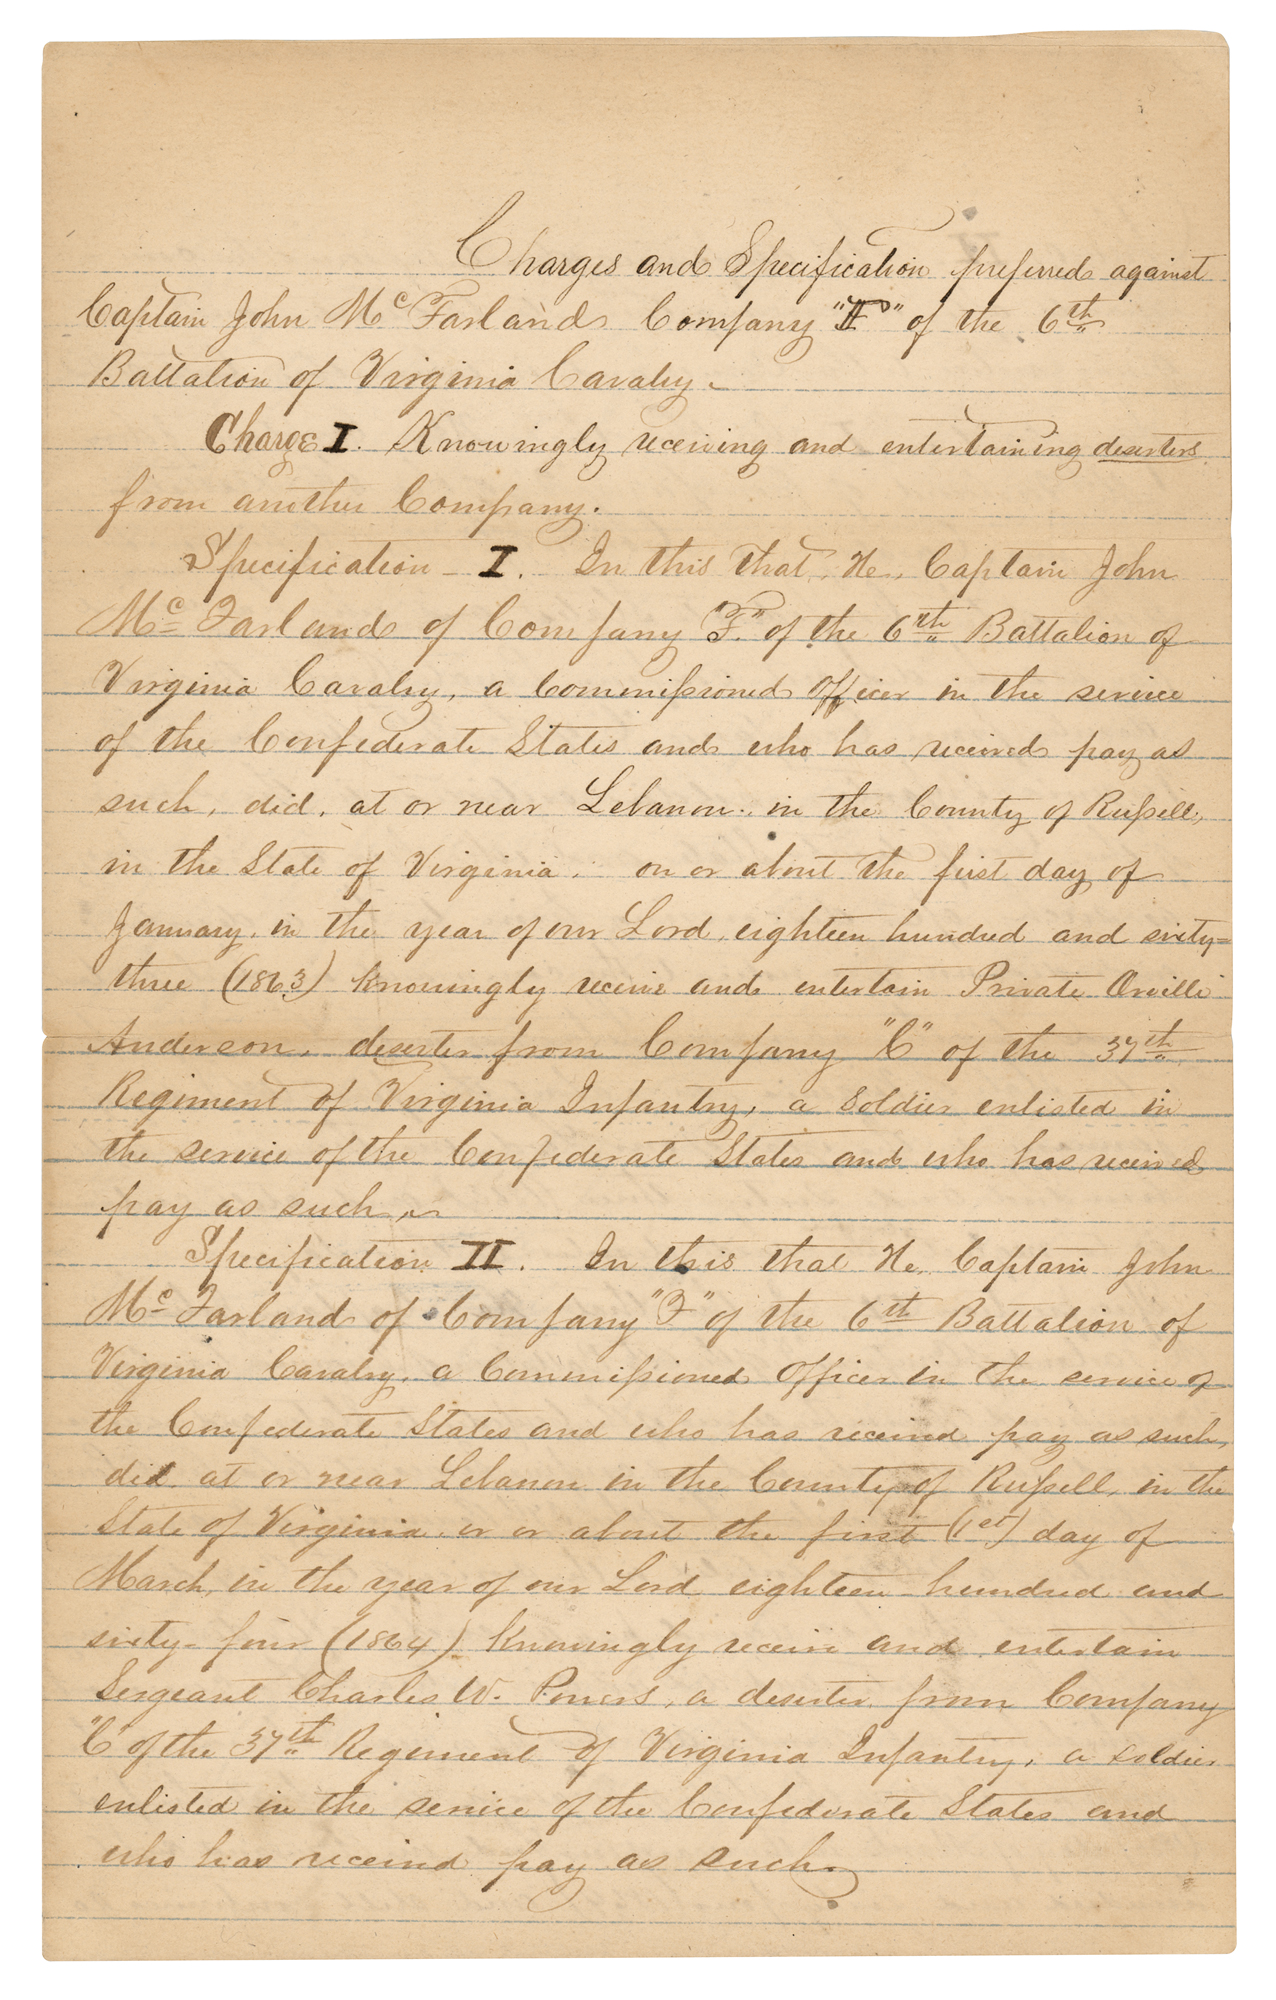 Charges and Specification preferred against
Captain John McFarland Company "F" of the 6th
Battalion of Virginia Cavalry.
Charge I. Knowingly receiving and entertaining deserters
from another Company.
Specification I. In this that, He, Captain John
McFarland of Company "F." of the 6th Battalion of
Virginia Cavalry, a Commissioned Officer in the service
of the Confederate States and who has received pay as
such, did, at or near Lebanon, in the County of Russell,
in the State of Virginia, on or about the first day of
January, in the year of our Lord, eighteen hundred and sixty-
three (1863) Knowingly receive and entertain Private Orville
Anderson, deserter from Company "C" of the 37th
Regiment of Virginia Infantry, a Soldier enlisted in
the service of the Confederate States and who has received
pay as such.
Specification II. In this that He, Captain John
McFarland of Company "F" of the 6th Battalion of
Virginia Cavalry, a Commissioned Officer in the service of
the Confederate States and who has received pay as such,
did at or near Lebanon in the County of Russell, in the
State of Virginia or or about the first (1st) day of
March, in the year of our Lord eighteen hundred and
sixty-four (1864) Knowingly receive and entertain
Sergeant Charles W. Powers, a deserter from Company
"C" of the 37th Regiment of Virginia Infantry, a soldier
enlisted in the service of the Confederate States and
who has received pay as such.